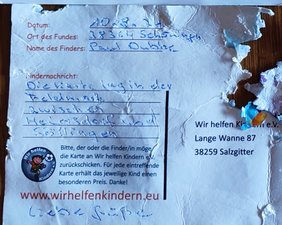 Datum:
Ort des Fundes: 38364 Schöningen
Name des Finders: Paul
Findernachricht:
Die Karte lag in der
Feldmark
zwischen
und
Bitte, der oder die Finder/in möge
die Karte an Wir helfen Kindern e.V.
zurückschicken. Für jede eintreffende
Karte erhält das jeweilige Kind einen
besonderen Preis. Danke!
www.wirhelfenkindern.eu
Liebe Grüße
Wir helfen Kindern e.V.
Lange Wanne 87
38259 Salzgitter
Wir helfen